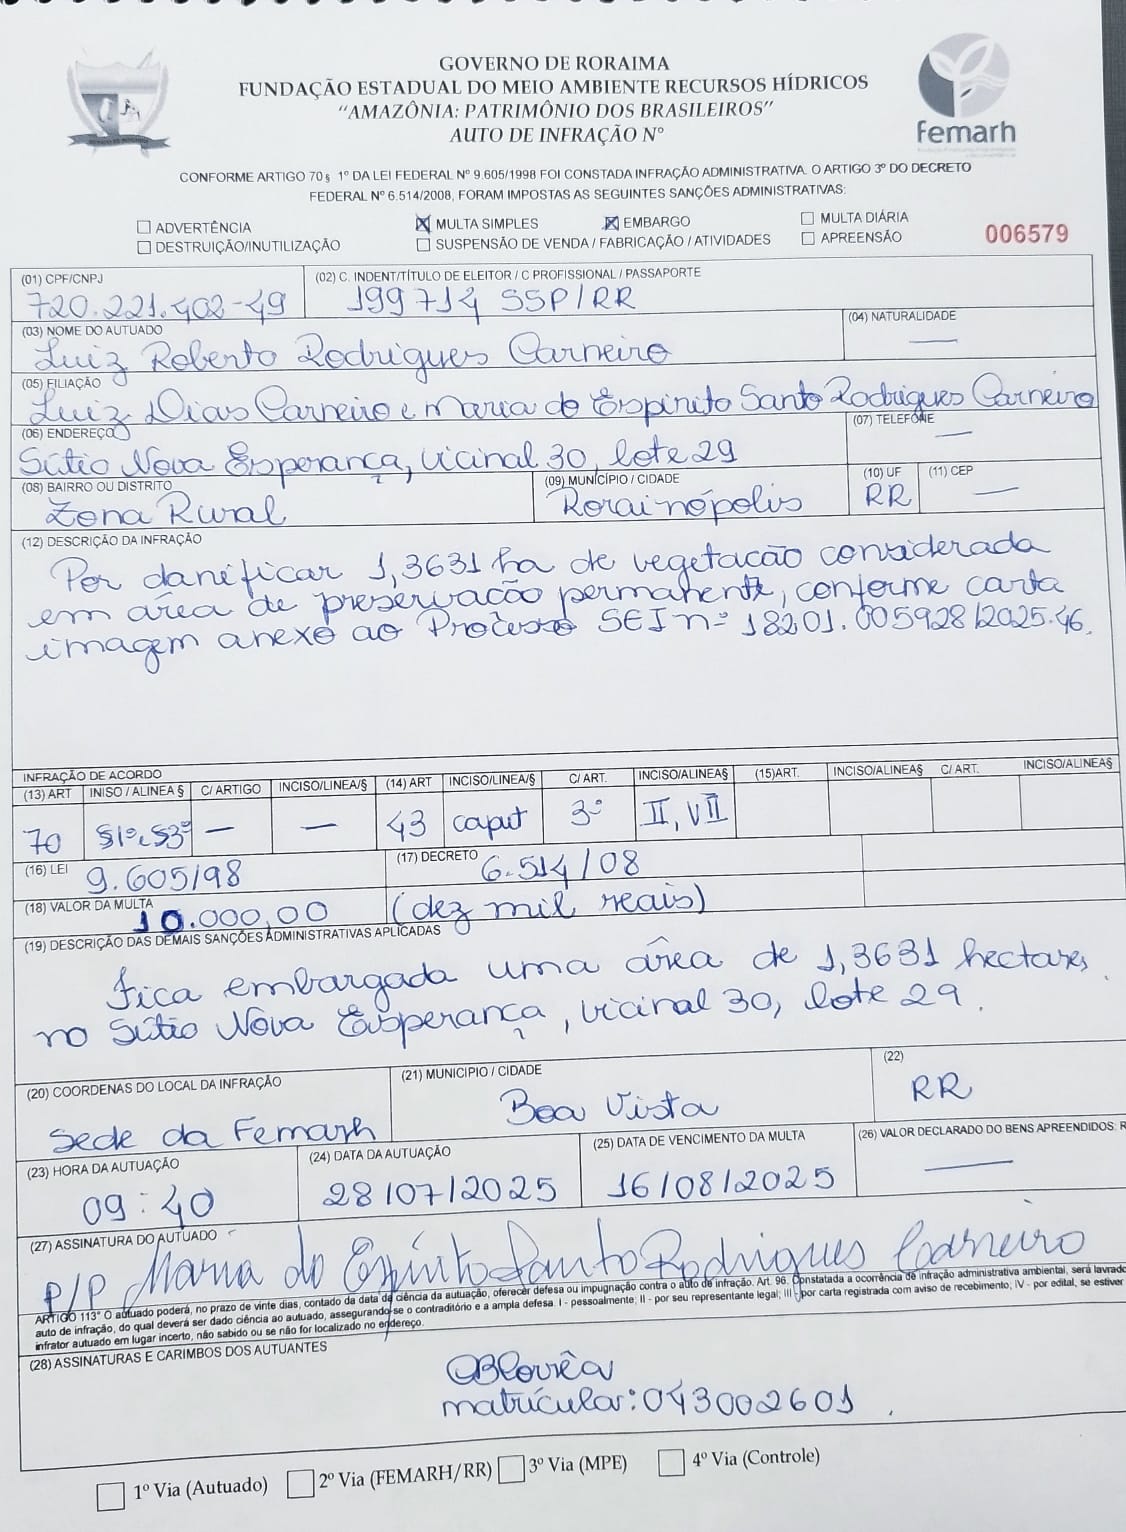 GOVERNO DE RORAIMA
FUNDAÇÃO ESTADUAL DO MEIO AMBIENTE RECURSOS HÍDRICOS
"AMAZÔNIA: PATRIMÔNIO DOS BRASILEIROS"
AUTO DE INFRAÇÃO N°
femarh
CONFORME ARTIGO 70 § 1º DA LEI FEDERAL Nº 9.605/1998 FOI CONSTADA INFRAÇÃO ADMINISTRATIVA. O ARTIGO 3º DO DECRETO
FEDERAL Nº 6.514/2008, FORAM IMPOSTAS AS SEGUINTES SANÇÕES ADMINISTRATIVAS:
ADVERTÊNCIA MULTA SIMPLES EMBARGO MULTA DIÁRIA
DESTRUIÇÃO/INUTILIZAÇÃO SUSPENSÃO DE VENDA / FABRICAÇÃO / ATIVIDADES APREENSÃO
006579
(01) CPF/CNPJ (02) C. INDENT/TÍTULO DE ELEITOR / C PROFISSIONAL / PASSAPORTE
720.221.402-49 199714 SSP/RR
(03) NOME DO AUTUADO (04) NATURALIDADE
Luiz Roberto Rodrigues Carneiro —
(05) FILIAÇÃO
Luiz Dias Carneiro e Maria do Espirito Santo Rodrigues Carneiro
(06) ENDEREÇO (07) TELEFONE
Sítio Nova Esperança, vicinal 30, lote 29 —
(08) BAIRRO OU DISTRITO (09) MUNICÍPIO / CIDADE (10) UF (11) CEP
Zona Rural Rorainópolis RR —
(12) DESCRIÇÃO DA INFRAÇÃO
Por danificar 1,3631 ha de vegetacão considerada
em área de preservacão permanente, conforme carta
imagem anexo ao Processo SEI nº 18201.005928/2025.46.
INFRAÇÃO DE ACORDO
(13) ART INISO / ALINEA § C/ ARTIGO INCISO/LINEA/§ (14) ART INCISO/LINEA/§ C/ ART. INCISO/ALINEA§ (15)ART. INCISO/ALINEA§ C/ ART. INCISO/ALINEA§
70 §1º, §3º — — 43 caput 3º II, VII
(16) LEI (17) DECRETO
9.605/98 6.514/08
(18) VALOR DA MULTA
10.000,00 (dez mil reais)
(19) DESCRIÇÃO DAS DEMAIS SANÇÕES ADMINISTRATIVAS APLICADAS
Fica embargada uma área de 1,3631 hectares,
no Sítio Nova Esperança, vicinal 30, lote 29.
(20) COORDENAS DO LOCAL DA INFRAÇÃO (21) MUNICIPIO / CIDADE (22)
Sede da Femarh Boa Vista RR
(23) HORA DA AUTUAÇÃO (24) DATA DA AUTUAÇÃO (25) DATA DE VENCIMENTO DA MULTA (26) VALOR DECLARADO DO BENS APREENDIDOS: R
09:40 28/07/2025 16/08/2025 —
(27) ASSINATURA DO AUTUADO
P/P Maria do Espírito Santo Rodrigues Carneiro
ARTIGO 113º O autuado poderá, no prazo de vinte dias, contado da data da ciência da autuação, oferecer defesa ou impugnação contra o auto de infração. Art. 96. Constatada a ocorrência de infração administrativa ambiental, será lavrado
auto de infração, do qual deverá ser dado ciência ao autuado, assegurando-se o contraditório e a ampla defesa. I - pessoalmente; II - por seu representante legal; III - por carta registrada com aviso de recebimento; IV - por edital, se estiver
infrator autuado em lugar incerto, não sabido ou se não for localizado no endereço.
(28) ASSINATURAS E CARIMBOS DOS AUTUANTES
matrícula: 043002601
1º Via (Autuado) 2º Via (FEMARH/RR) 3º Via (MPE) 4º Via (Controle)